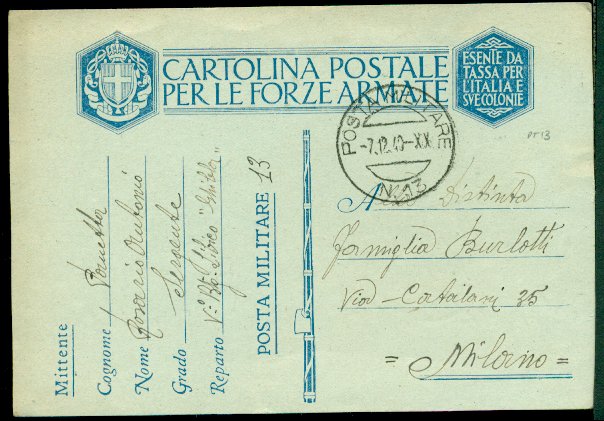 CARTOLINA POSTALE
PER LE FORZE ARMATE
ESENTE DA
TASSA PER
L'ITALIA E
SVE COLONIE
POSTA MILITARE
-7.12.40-XX
N.13
PT 13
Alla Distinta
famiglia Burlotti
Viad - Catalani 35
= Milano =
Mittente
Cognome
Nome Rosario Antonio
Grado Sergente
Reparto V° Btg. Libico
POSTA MILITARE 13